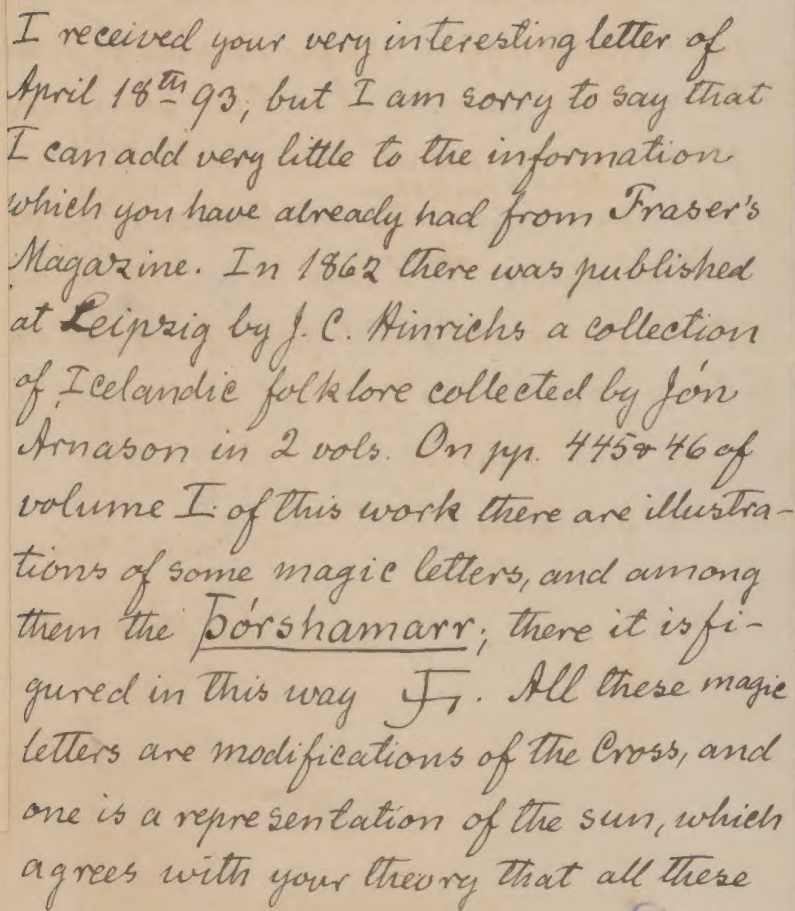 I received your very interesting letter of
April 18th 93, but I am sorry to say that
I can add very little to the information
which you have already had from Fraser's
Magazine. In 1862 there was published
at Leipzig by J. C. Hinrichs a collection
of Icelandic folklore collected by Jón
Arnason in 2 vols. On pp. 445 & 46 of
volume I. of this work there are illustra-
tions of some magic letters, and among
them the Þórshamarr; there it is fi-
gured in this way 卐. All these magic
letters are modifications of the Cross, and
one is a representation of the sun, which
agrees with your theory that all these